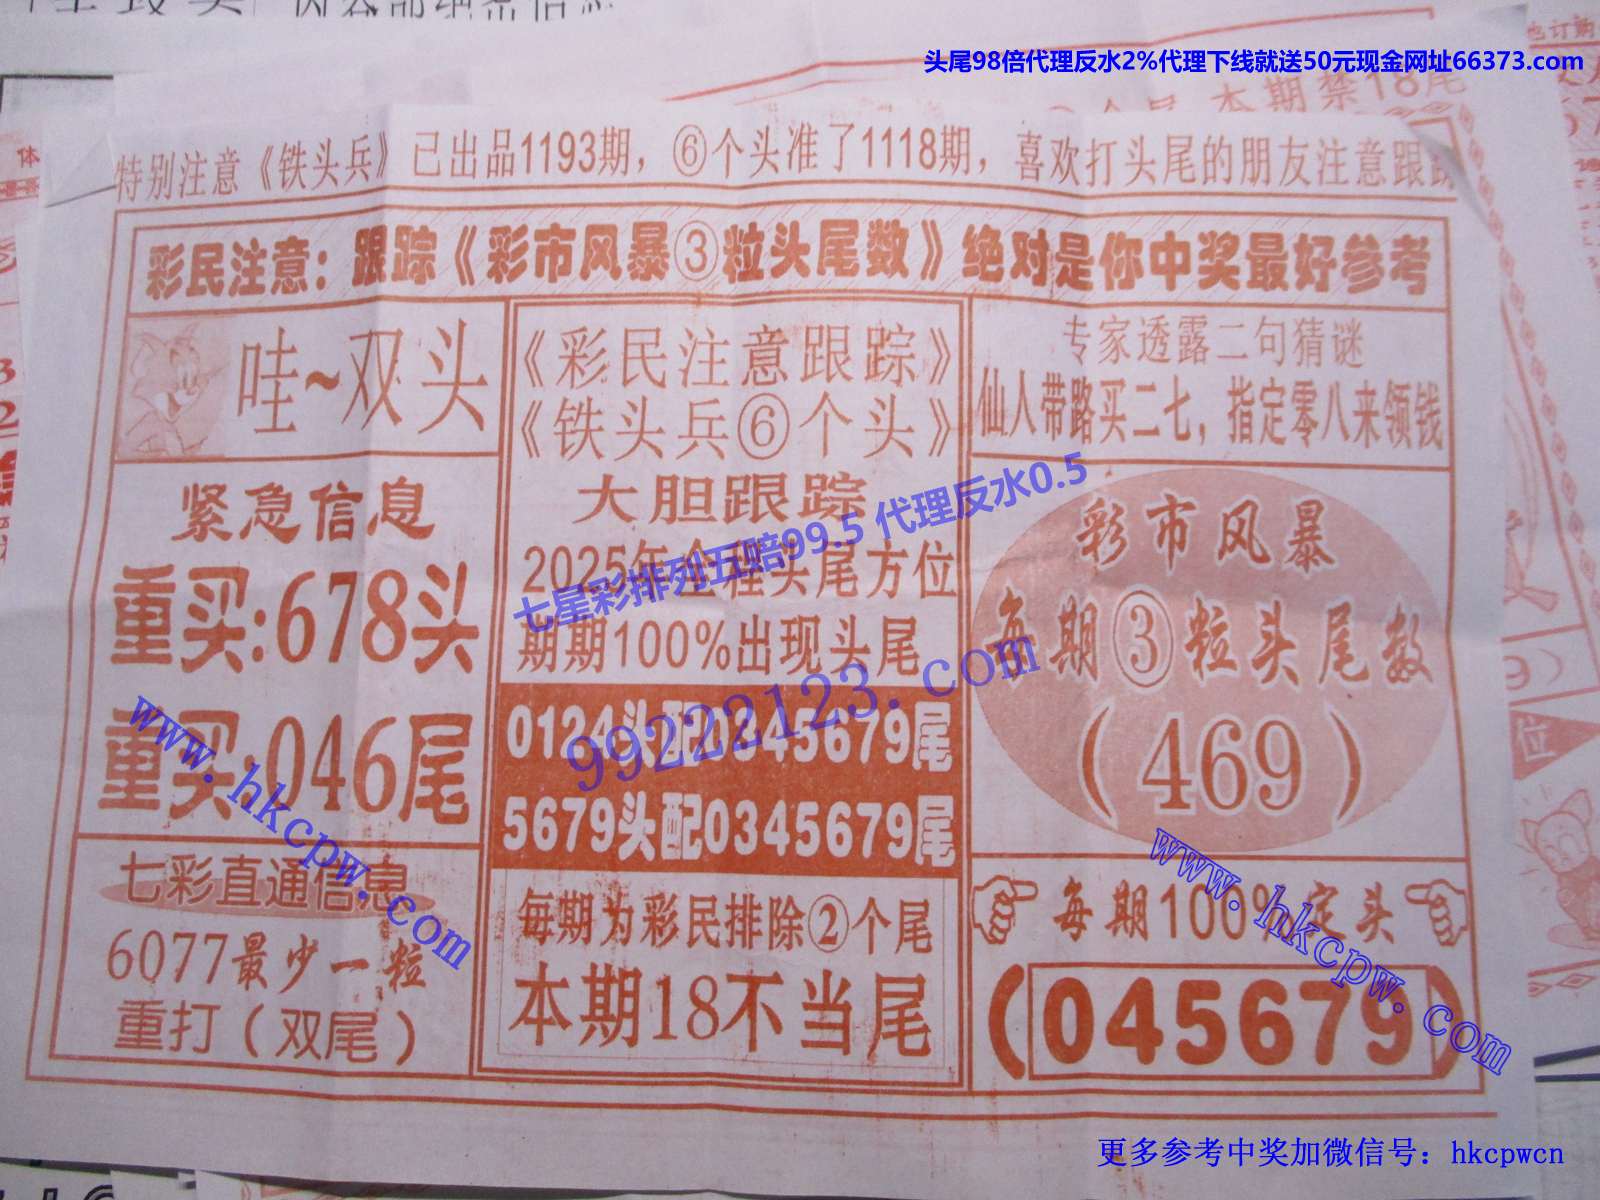 头尾98倍代理反水2%代理下线就送50元现金网址66373.com
本期禁18尾
特别注意《铁头兵》已出品1193期，⑥个头准了1118期，喜欢打头尾的朋友注意跟踪
彩民注意：跟踪《彩市风暴③粒头尾数》绝对是你中奖最好参考
哇~双头
紧急信息
重买:678头
重买:046尾
七彩直通信息
6077最少一粒
重打（双尾）
《彩民注意跟踪》
《铁头兵⑥个头》
大胆跟踪
2025年全程头尾方位
期期100%出现头尾
0124头配0345679尾
5679头配0345679尾
每期为彩民排除②个尾
本期18不当尾
专家透露二句猜谜
仙人带路买二七，指定零八来领钱
彩市风暴
每期③粒头尾数
（469）
每期100%定头
（045679）
七星彩排列五赔99.5 代理反水0.5
99222123.com
www.hkcpw.com
www.hkcpw.com
更多参考中奖加微信号：hkcpwcn